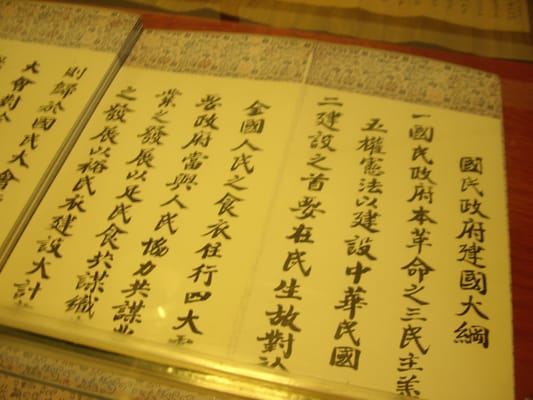 國民政府建國大綱
一國民政府本革命之三民主義
五權憲法以建設中華民國
二建設之首要在民生故對
全國人民之食衣住行四大
要政府當與人民協力共謀
業之發展以足民食共謀織
之發展以裕民衣建設大計
則歸於國民大會
大會對於